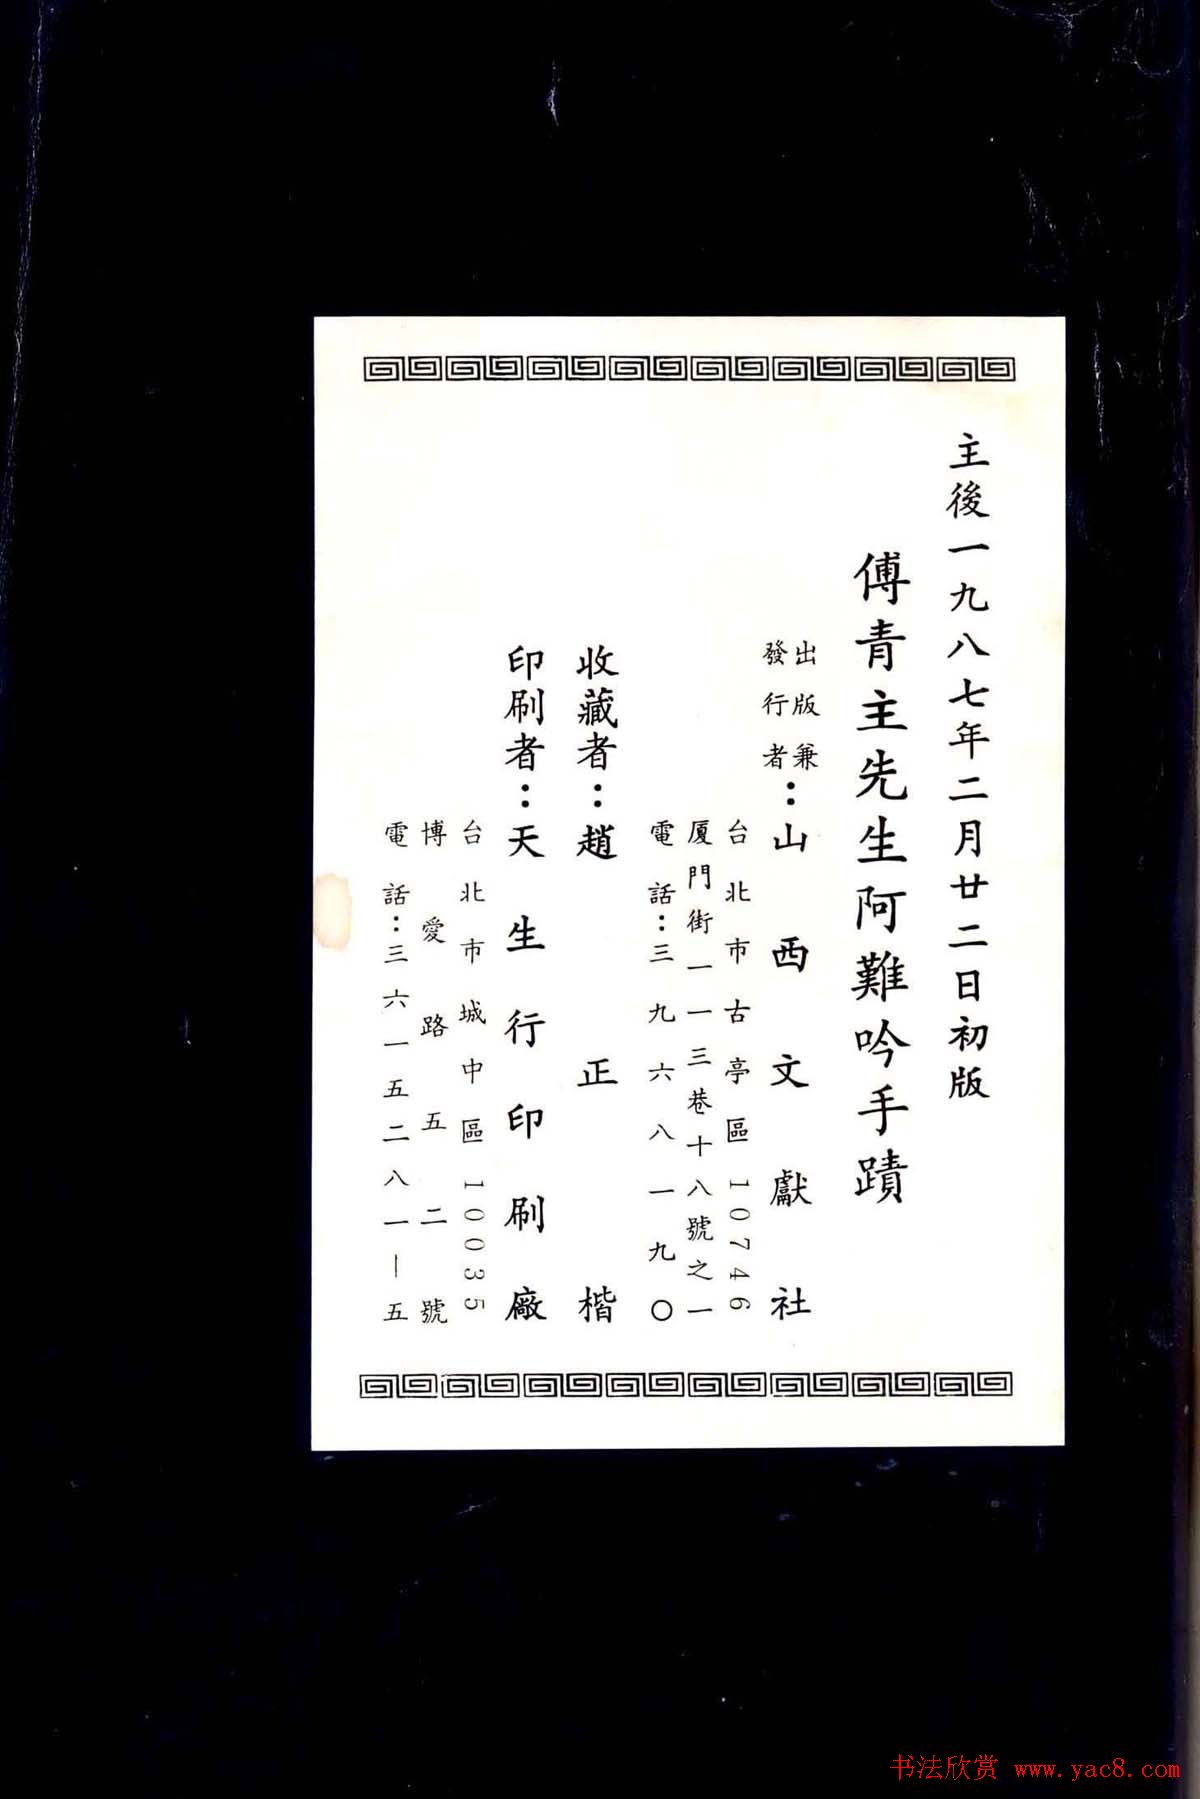 主後一九八七年二月廿二日初版
傅青主先生阿難吟手蹟
出版兼
發行者：山西文獻社
台北市古亭區10746
厦門街一一三巷十八號之一
電話：三九六八一九〇
收藏者：趙正楷
印刷者：天生行印刷廠
台北市城中區10035
博愛路五二號
電話：三六一五二八一—五
书法欣赏 www.yac8.com